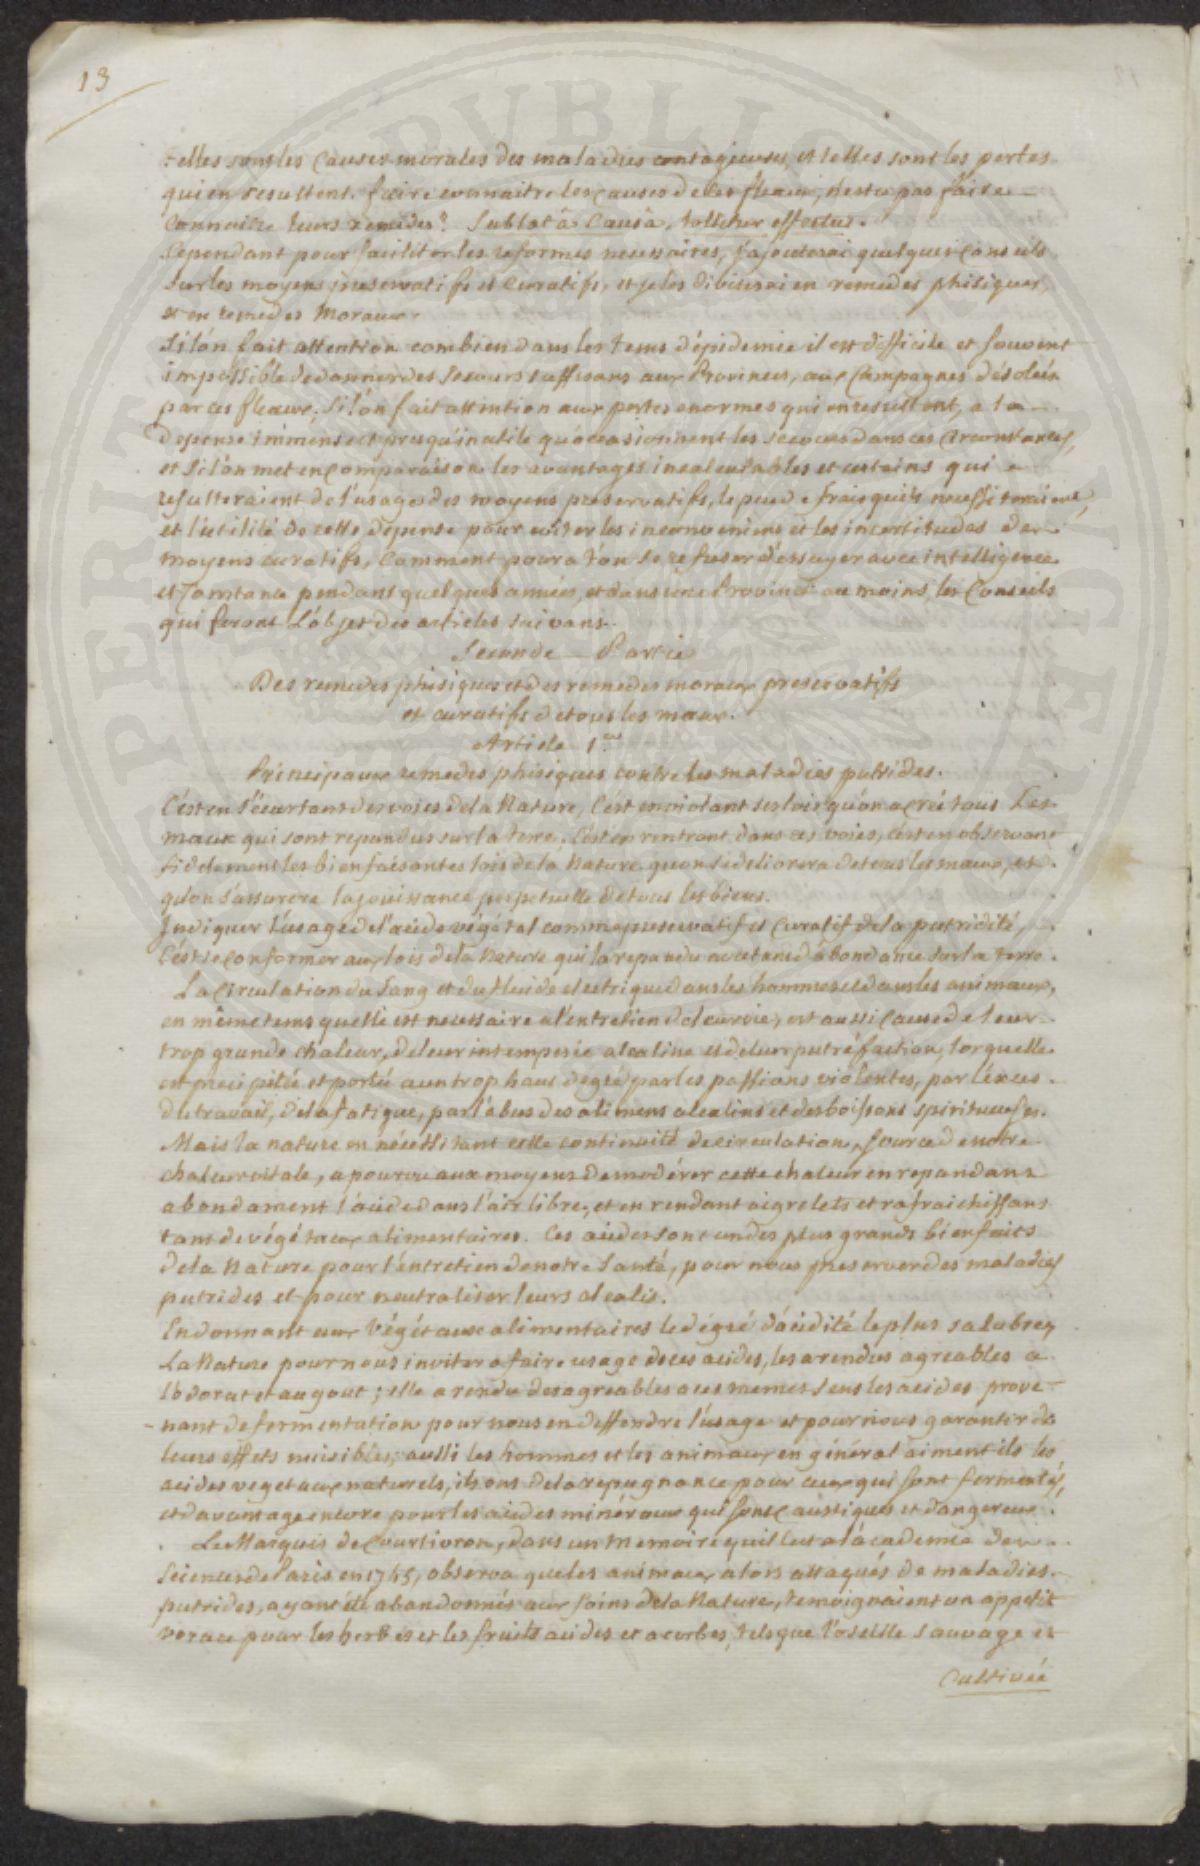 13
telles sont les causes morales des maladies contagieuses, et telles sont les pertes
qui en resultent. faire connaitre les causes de ces fleaux, nest ce pas faire
connoitre leurs remedes? Sublatâ Causâ, tollitur effectus.
Cependant pour faciliter les reformes necessaires, j'ajouterai quelques conseils
sur les moyens preservatifs et curatifs, et je les diviserai en remedes phisiques,
et en remedes Moraux.
Si lón fait attention combien dans les tems d'épidemie il est difficile et souvent
impossible de donner des secours suffisans aux Provinces, aux Campagnes désolées
par ces fleaux; si lón fait attention aux pertes enormes qui en resultent, a la
depense immense et presqu'inutile qu'occasionnent les secours dans ces circonstances,
et si lón met en comparaison les avantages incalculables et certains qui
resulteraient de l'usage des moyens preservatifs, le peu de frais qu'ils necessiteroient,
et l'utilité de cette depense pour eviter les inconveniens et les incertitudes des
moyens curatifs, Comment poura t'on se refuser d'essayer avec intelligence
et constance pendant quelques années, et dans une Province au moins, les Conseils
qui feront L'objet des articles suivans.
Seconde Partie
Des remedes phisiques et des remedes moraux preservatifs
et curatifs de tous les maux.
Article 1er
Principaux remedes phisiques contre les maladies putrides.
C'est en s'écartant des voies de la Nature, C'est en violant ses lois qu'on a créé tous Les
maux qui sont repandus sur la terre. C'est en rentrant dans ces voies, c'est en observant
fidelement les bienfaisantes lois de la Nature qu'on se delivrera de tous les maux, et
qu'on s'assurera la jouissance perpetuelle de tous les biens.
Indiquer l'usage de l'acide végétal comme preservatif et curatif de la putridité,
C'est se conformer aux lois de la Nature qui la repandu avec tant d'abondance sur la terre.
La Circulation du Sang et du fluide electrique dans les hommes et dans les animaux,
en même tems quelle est necessaire a l'entretien de leur vie, est aussi cause de leur
trop grande chaleur, de leur intemperie alcaline et de leur putréfaction, lorquelle
est precipitée et portée a un trop haut degré par les passions violentes, par l'éxces
du travail, de la fatigue, par l'abus des alimens alcalins et des boissons spiritueuses.
Mais la nature en nécessitant cette continuité de circulation, source de notre
chaleur vitale, a pourvu aux moyens de modérer cette chaleur en repandant
abondament l'acide dans l'air libre, et en rendant aigrelets et rafraichissans
tant de végétaux alimentaires. Ces acides sont un des plus grands bienfaits
de la Nature pour l'entretien de notre Santé, pour nous preserver des maladies
putrides et pour neutraliser leurs alcalis.
En donnant aux Végétaux alimentaires le dégré d'acidité le plus salubre,
La Nature pour nous inviter a faire usage de ces acides, les a rendus agreables a
l'odorat et au gout; elle a rendu desagreables a ces memes sens les acides prove-
-nant de fermentation pour nous en deffendre l'usage et pour nous garantir de
leurs effets nuisibles; aussi les hommes et les animaux en général aiment ils les
acides vegetaux naturels, ils ont de la repugnance pour ceux qui sont fermentés,
et davantage encore pour les acides minéraux qui sont caustiques et dangereux.
Le Marquis de Courtivron, dans un memoire quil lut a l'academie des
Sciences de Paris en 1745, observa que les animaux alors attaqués de maladies
putrides, ayant été abandonnés aux soins de la Nature, temoignaient un appetit
vorace pour les herbes et les fruits acides et acerbes, tels que l'oseille sauvage et
Cultivée